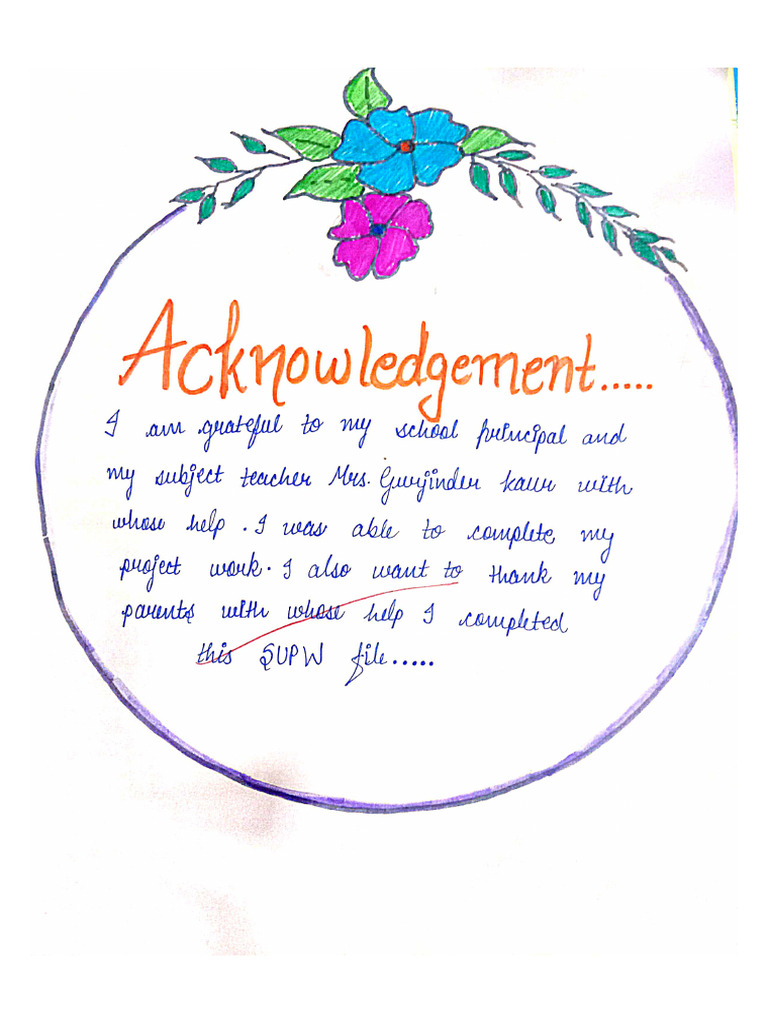 Acknowledgement.....
I am grateful to my school principal and
my subject teacher Mrs. Gurjinder kaur with
whose help . I was able to complete my
project work. I also want to thank my
parents with whose help I completed
this SUPW file.....